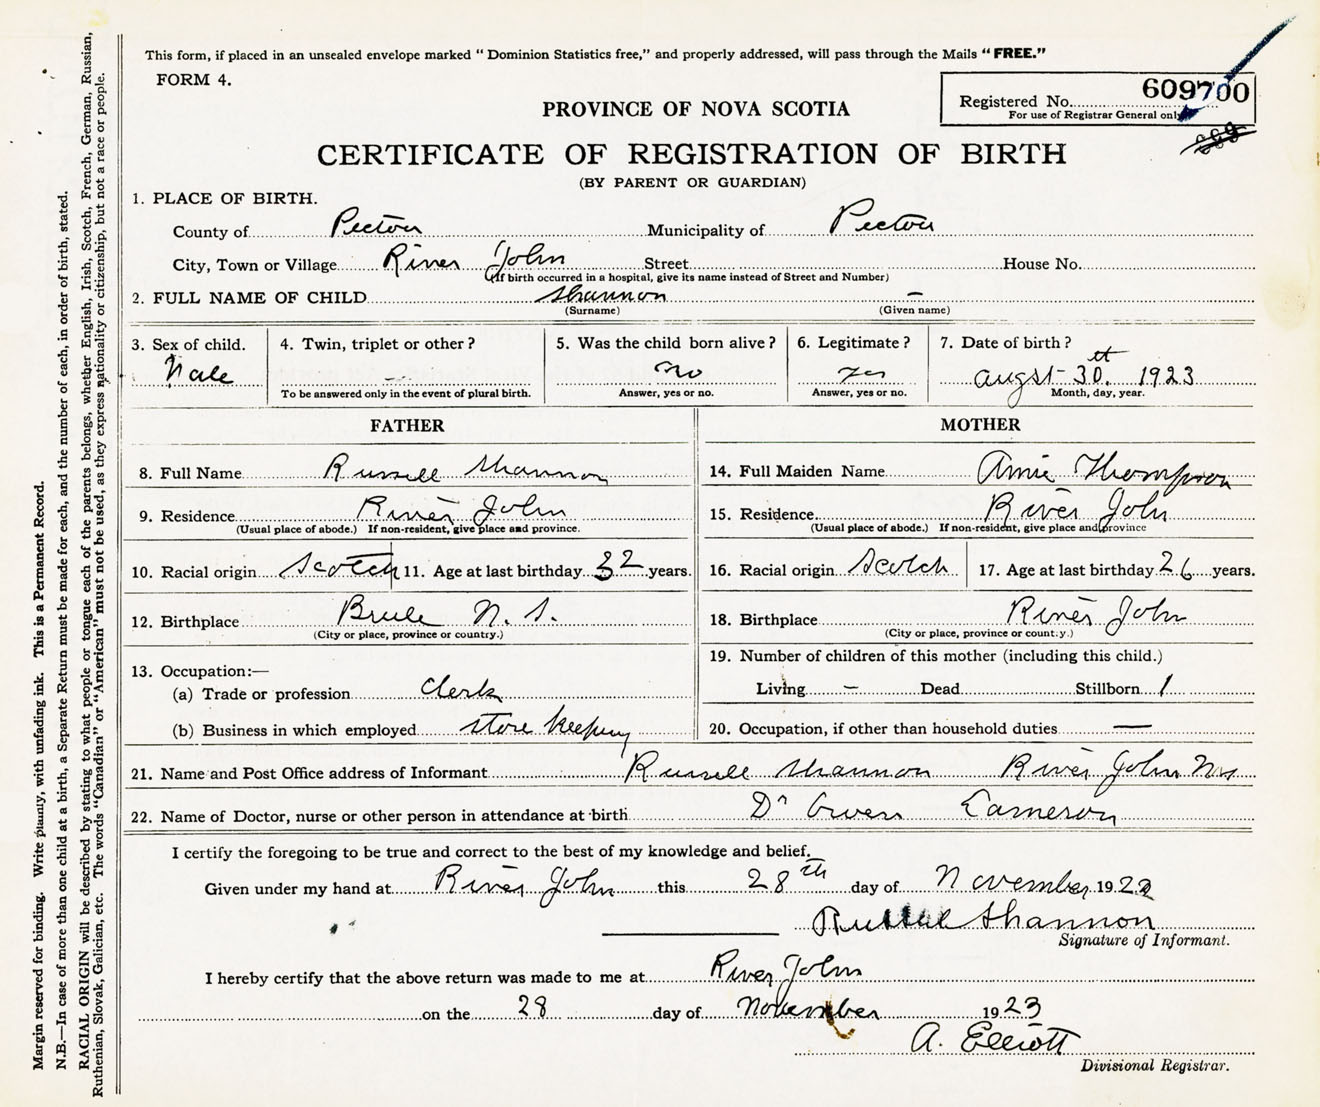 This form, if placed in an unsealed envelope marked " Dominion Statistics free," and properly addressed, will pass through the Mails " FREE."
FORM 4.
609700
Registered No.
For use of Registrar General only
PROVINCE OF NOVA SCOTIA
CERTIFICATE OF REGISTRATION OF BIRTH
(BY PARENT OR GUARDIAN)
1. PLACE OF BIRTH.
County of Pictou Municipality of Pictou
City, Town or Village River John Street House No.
(If birth occurred in a hospital, give its name instead of Street and Number)
2. FULL NAME OF CHILD Shannon —
(Surname) (Given name)
3. Sex of child. 4. Twin, triplet or other ? 5. Was the child born alive ? 6. Legitimate ? 7. Date of birth ?
Male — No yes augst 30th 1923
To be answered only in the event of plural birth. Answer, yes or no. Answer, yes or no. Month, day, year.
FATHER MOTHER
8. Full Name Russell Shannon 14. Full Maiden Name Annie Thompson
9. Residence River John 15. Residence River John
(Usual place of abode.) If non-resident, give place and province. (Usual place of abode.) If non-resident, give place and province
10. Racial origin Scotch 11. Age at last birthday 32 years. 16. Racial origin Scotch 17. Age at last birthday 26 years.
12. Birthplace Brule N. S. 18. Birthplace River John
(City or place, province or country.) (City or place, province or country.)
13. Occupation:— 19. Number of children of this mother (including this child.)
(a) Trade or profession Clerk Living — Dead Stillborn 1
(b) Business in which employed store keeping 20. Occupation, if other than household duties —
21. Name and Post Office address of Informant Russell Shannon River John N.S
22. Name of Doctor, nurse or other person in attendance at birth Dr Owen Cameron
I certify the foregoing to be true and correct to the best of my knowledge and belief.
Given under my hand at River John this 28th day of November 19
Russell Shannon
Signature of Informant.
I hereby certify that the above return was made to me at River John
on the 28 day of November 1923
A. Elliott
Divisional Registrar.
Margin reserved for binding. Write plainly, with unfading ink. This is a Permanent Record.
N.B.—In case of more than one child at a birth, a Separate Return must be made for each, and the number of each, in order of birth, stated.
RACIAL ORIGIN will be described by stating to what people or tongue each of the parents belongs, whether English, Irish, Scotch, French, German, Russian,
Ruthenian, Slovak, Galician, etc. The words "Canadian" or "American" must not be used, as they express nationality or citizenship, but not a race or people.